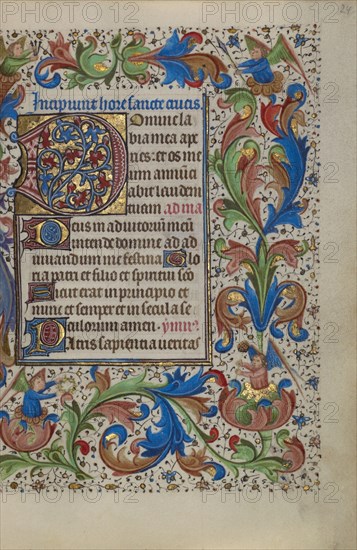 Incipiunt hore sancte crucis.
Domine la
bia mea ape
ries: et os me
um annūci
abit laudem
tuam ad ma
Deus in adiutoriū meū
intende domine ad ad
iuuandum me festina Glo
ria patri et filio et spiritui sco
Sicut erat in principio et
nunc et semper et in secula se
culorum amen. ymnꝰ
Patris sapientia ueritas